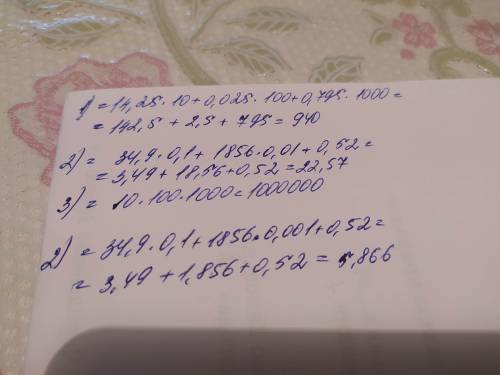 1) = 14,25 · 10 + 0,025 · 100 + 0,795 · 1000 =
= 142,5 + 2,5 + 795 = 940
2) = 34,9 · 0,1 + 1856 · 0,01 + 0,52 =
= 3,49 + 18,56 + 0,52 = 22,57
3) = 10 · 100 · 1000 = 1000000
2) = 34,9 · 0,1 + 1856 · 0,001 + 0,52 =
= 3,49 + 1,856 + 0,52 = 5,866